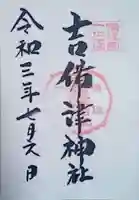 吉備津神社
令和三年七月六日